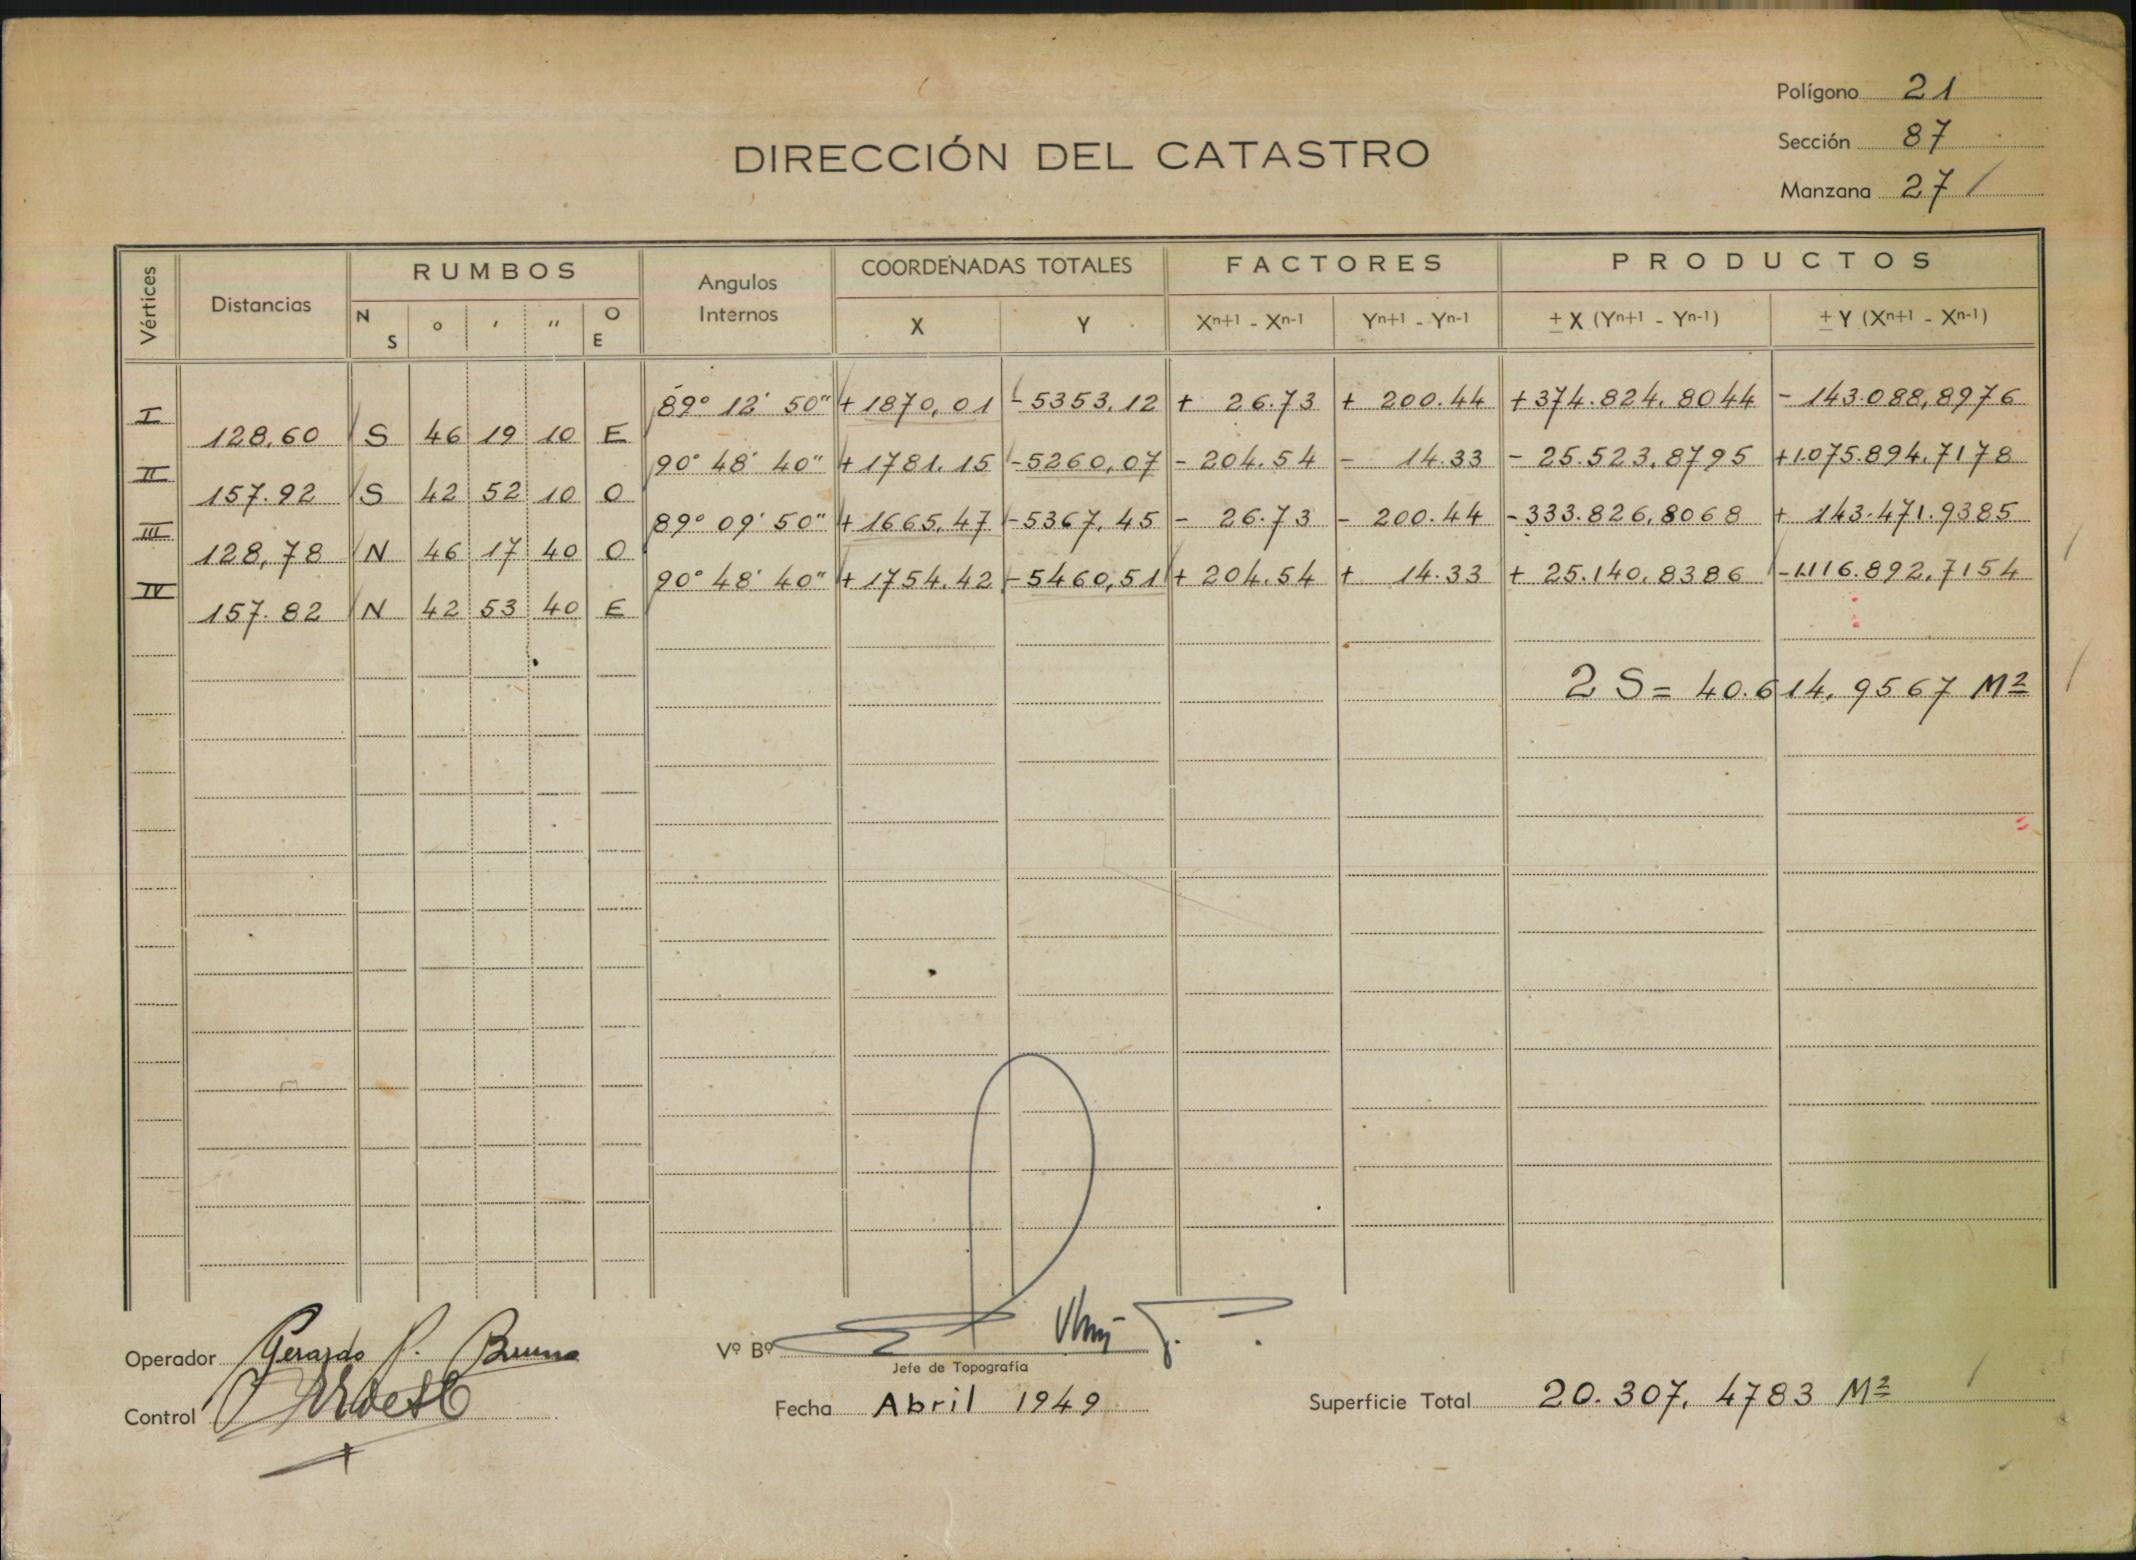 Polígono 21
DIRECCIÓN DEL CATASTRO
Sección 87
Manzana 27
Vértices Distancias RUMBOS Angulos Internos COORDENADAS TOTALES FACTORES PRODUCTOS
N S ° ' " O E X Y Xⁿ⁺¹ - Xⁿ⁻¹ Yⁿ⁺¹ - Yⁿ⁻¹ ± X (Yⁿ⁺¹ - Yⁿ⁻¹) ± Y (Xⁿ⁺¹ - Xⁿ⁻¹)
I 89° 12' 50" + 1870,01 - 5353,12 + 26.73 + 200.44 + 374.824,8044 - 143.088,8976
128,60 S 46 19 10 E
II 90° 48' 40" + 1781.15 - 5260,07 - 204.54 - 14.33 - 25.523,8795 + 1.075.894,7178
157.92 S 42 52 10 O
III 89° 09' 50" + 1665,47 - 5367,45 - 26.73 - 200.44 - 333.826,8068 + 143.471.9385
128,78 N 46 17 40 O
IV 90° 48' 40" + 1754.42 - 5460,51 + 204.54 + 14.33 + 25.140,8386 - 1.116.892,7154
157.82 N 42 53 40 E
2 S = 40.614,9567 M²
Operador Gerardo P. Bruno
Vº Bº
Jefe de Topografía
Control
Fecha Abril 1949
Superficie Total 20.307,4783 M²